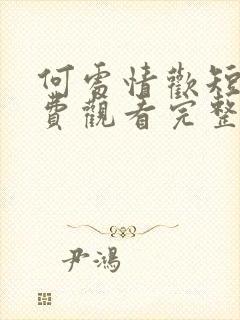 何處情歡短
費觀看完整
尹鴻